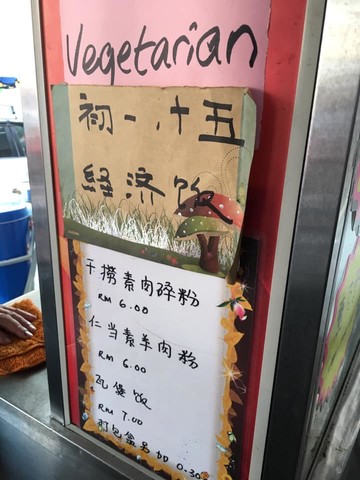 Vegetarian
初一.十五
経济饭
干捞素肉碎粉
RM 6.00
仁当素羊肉粉
RM 6.00
瓦煲饭
RM 7.00
打包盒另加 0.30